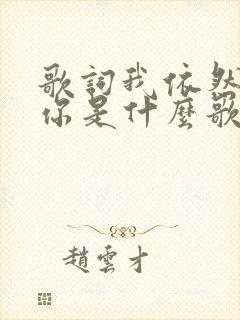 歌詞我依然
你是什麼歌
趙雲才